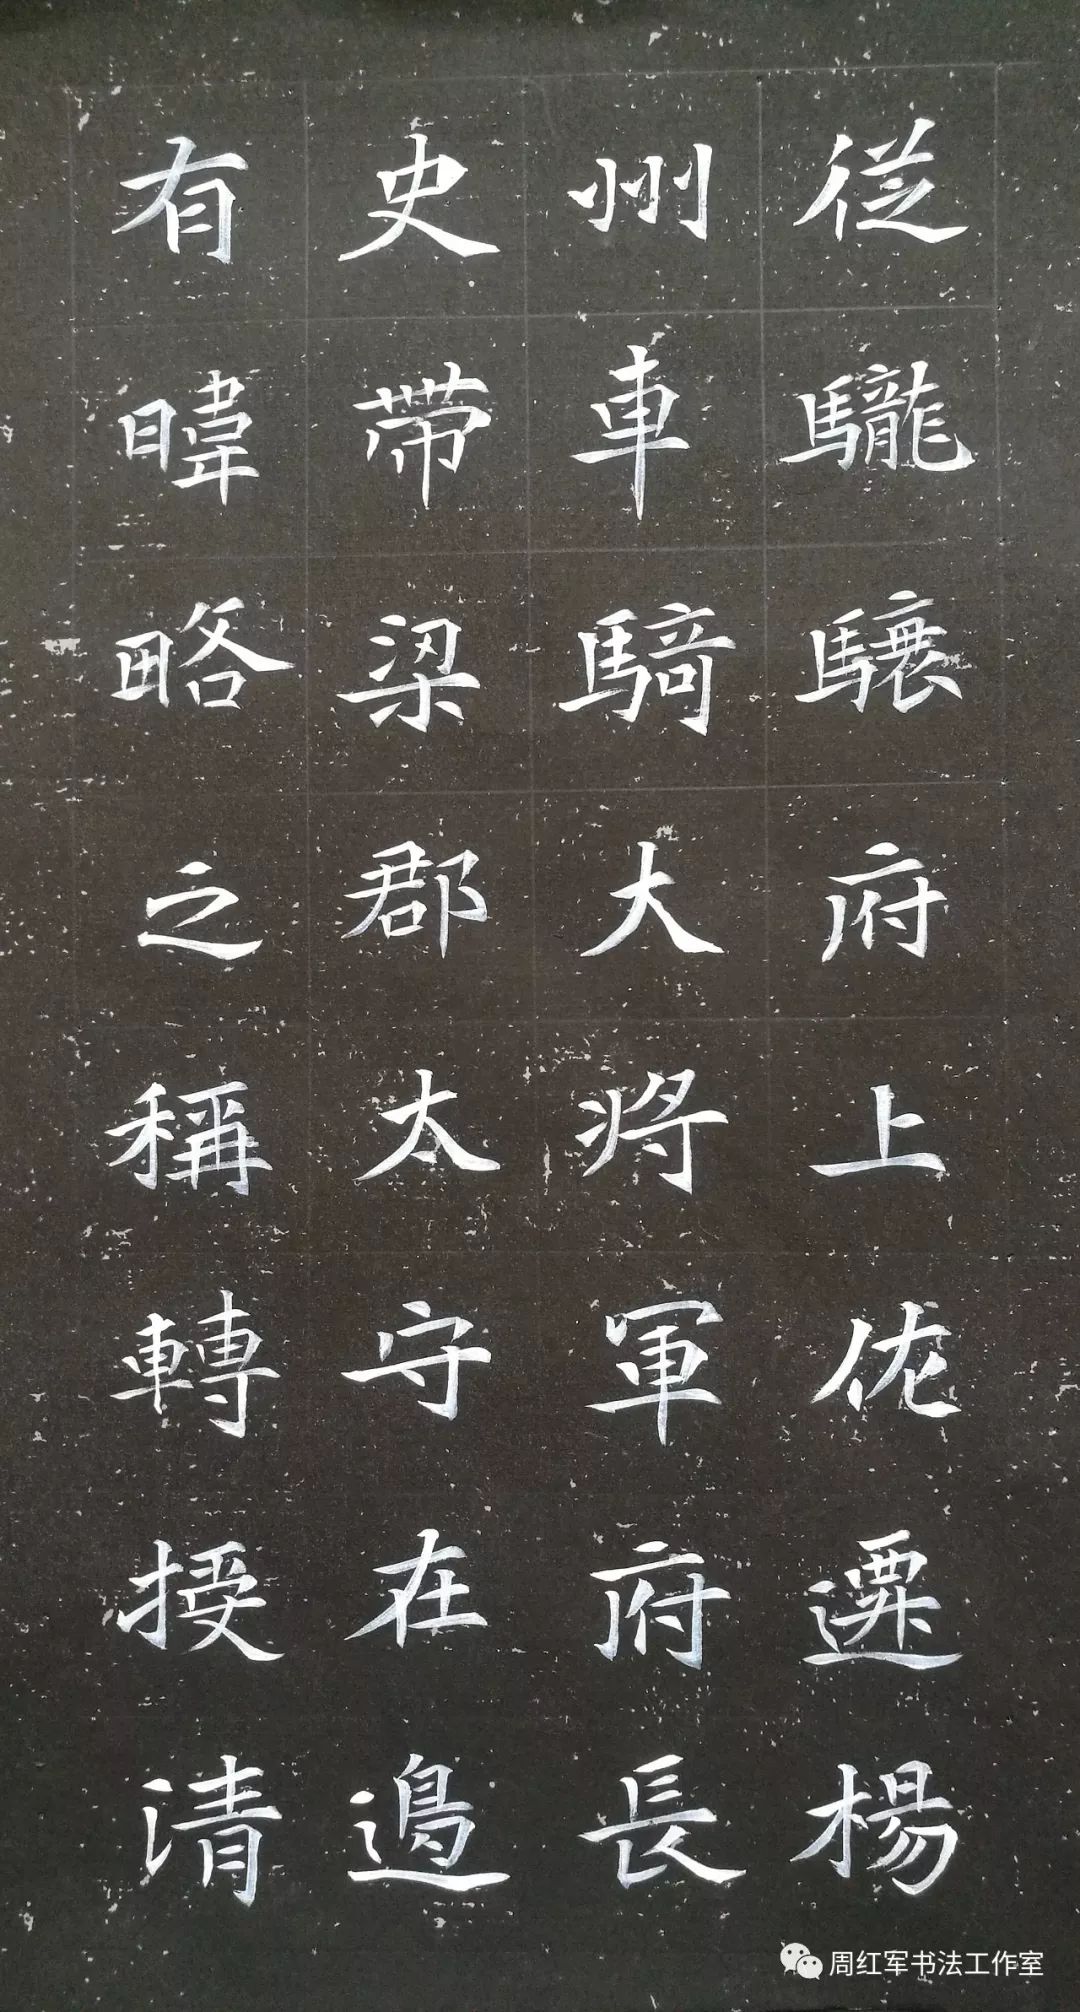 従驡驤府上佐遷楊
州車騎大将軍府長
史帶梁郡太守在邉
有暐略之稱轉授清
周红军书法工作室